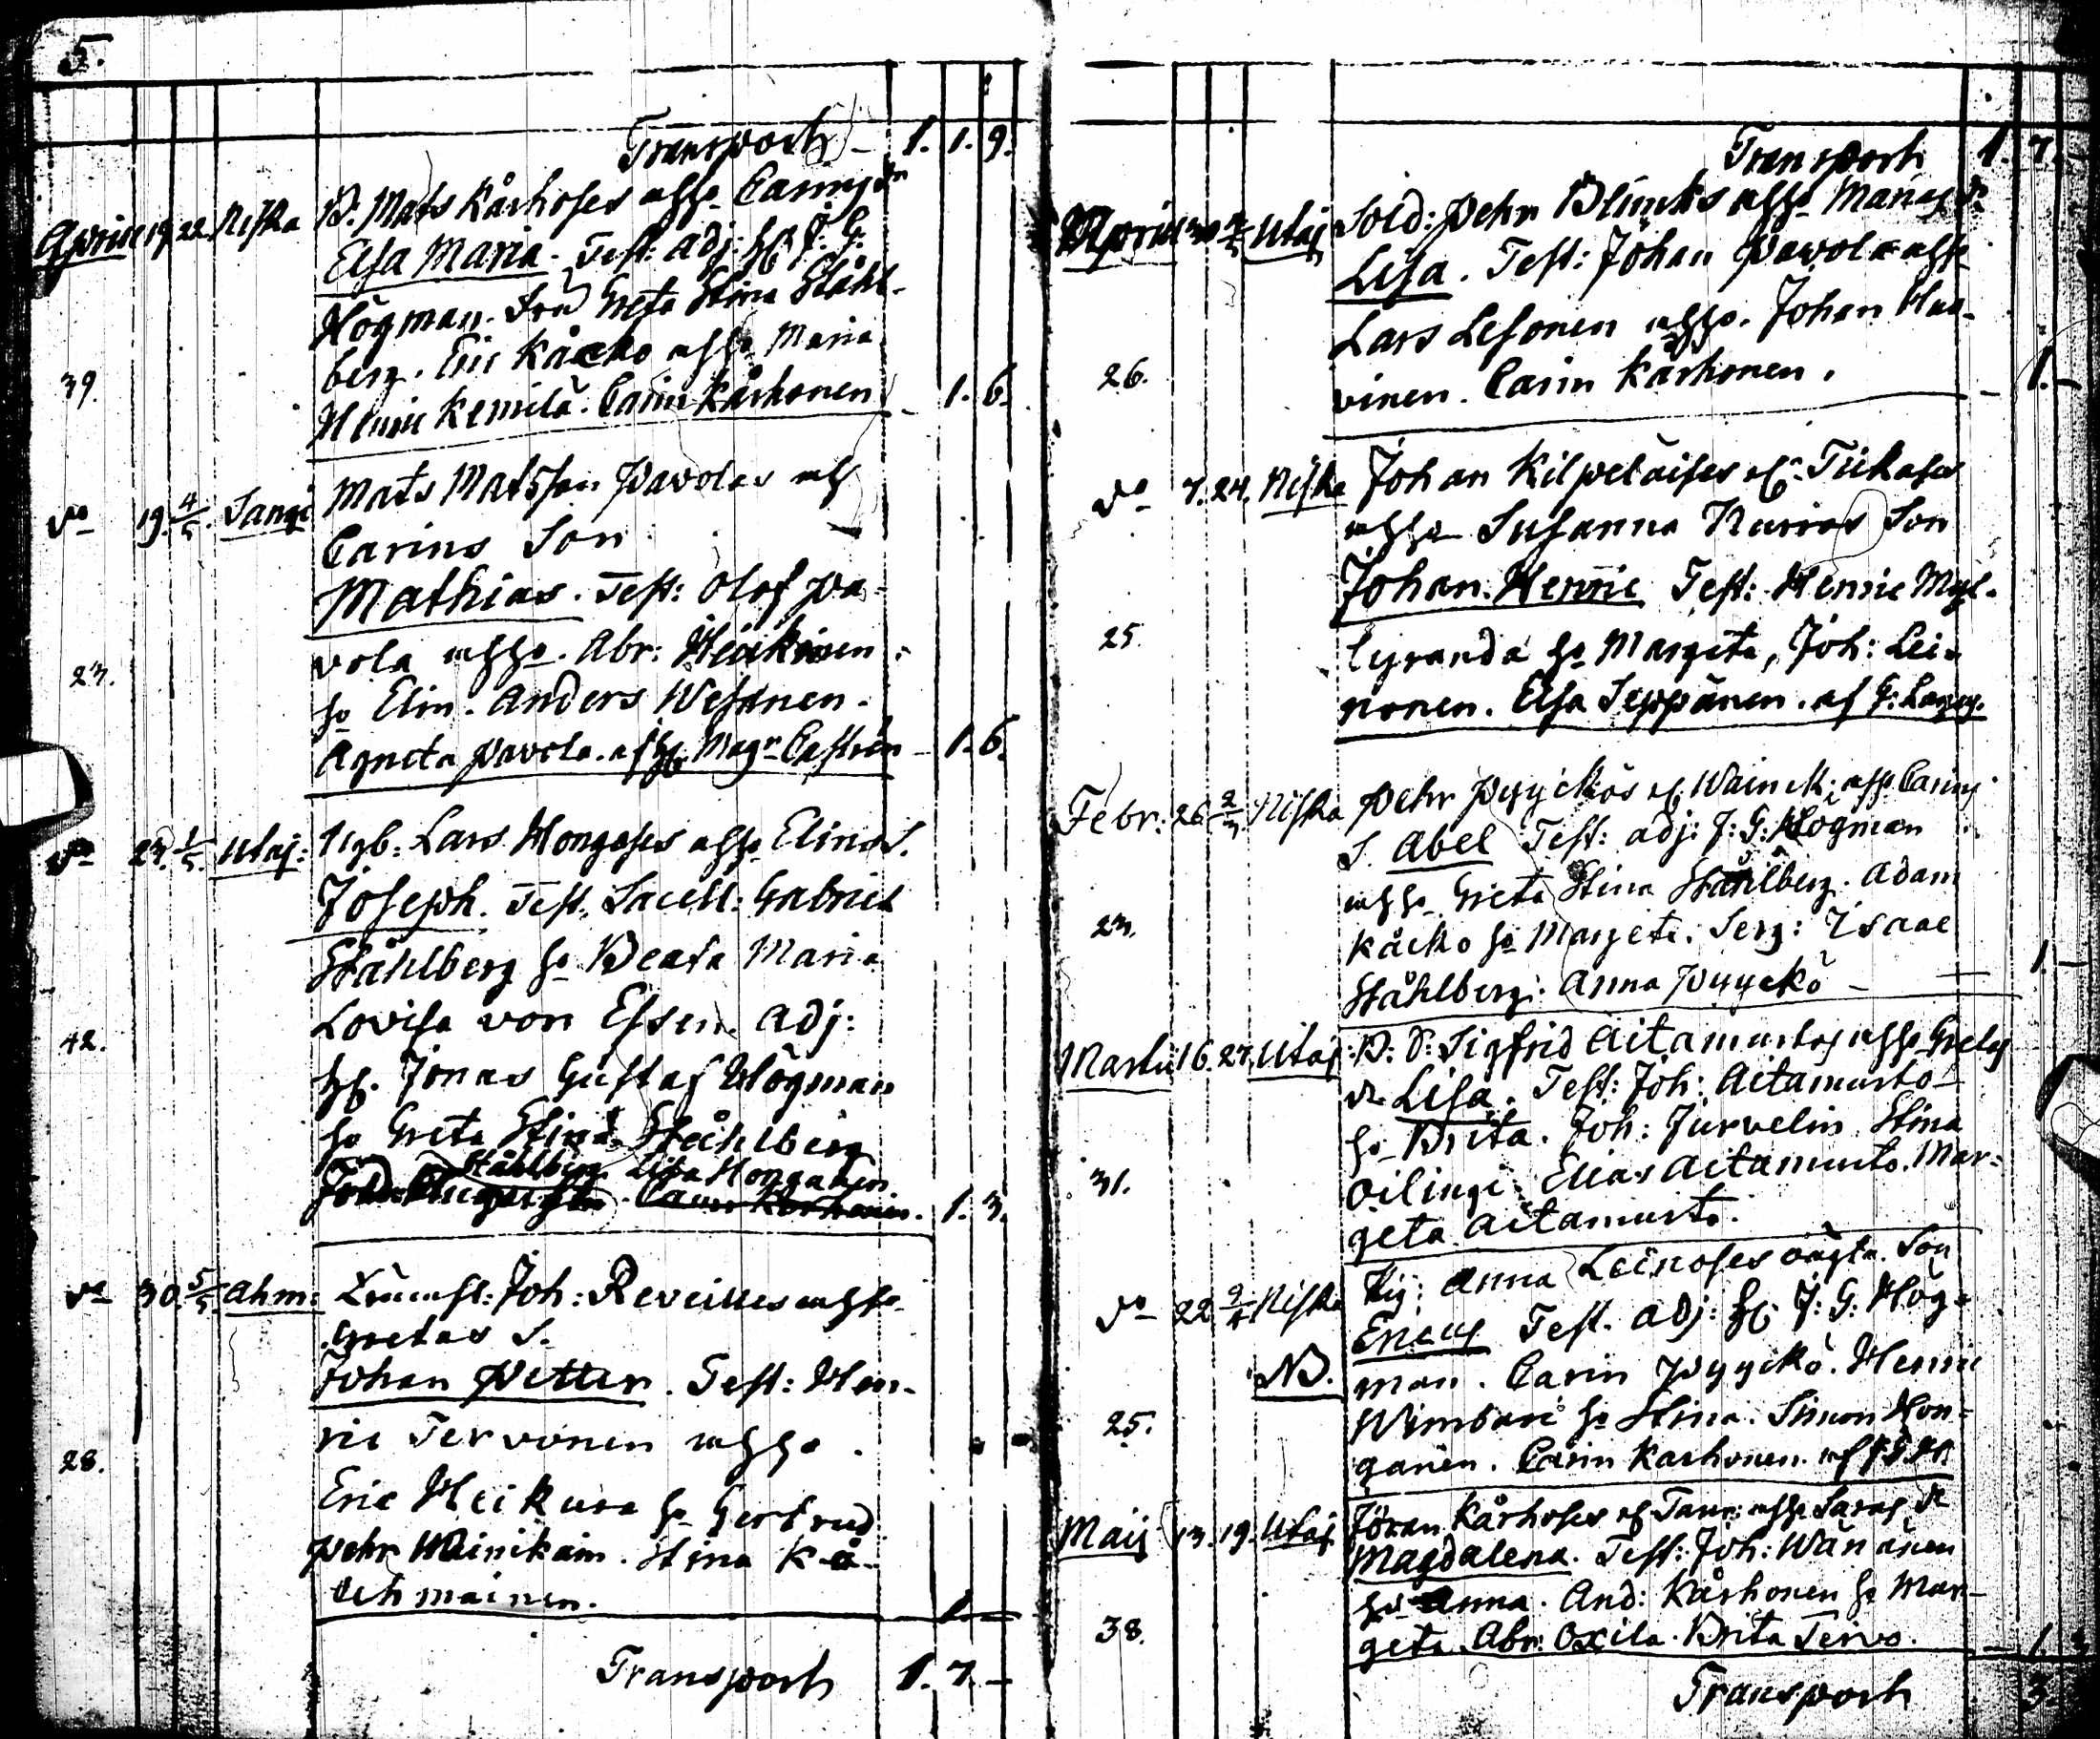 5.
Transport 1. 1. 9.
Aprill 19. 22. Niska B. Mats Kårhoses Carins dr
Elsa Maria. Test: Adj: H. J: G:
Högman. Fru Greta Stina Ståhl-
berg. Eric Kåcko Maria
39. Henric Kemilä. Carin Kårhonen 1. 6.
do 19. 4/5. Sangi Mats Matsson Pavolas
Carins Son
Mathias. Test: Olof Pa-
vola. Abr: Heickinen
23. ho Elin. Anders Wesanen.
Agneta Pavola. af H. Magr Castrén 1. 6.
do 23. 1/5. Utaj: Nyb: Lars Hongoses Elins S.
Joseph. Test. Sacell: Gabriel
Ståhlberg ho Beata Maria
Lovisa von Essen. Adj:
42. H. Jonas Gustaf Högman
ho Greta Stina Ståhlberg
Ståhlberg Lisa Honganen
Carin Korhonen. 1. 3.
do 30. 5/5. Ahm: Joh: Reveilles
Gretas S.
Johan Petter. Test: Hen-
ric Tervonen
28. Eric Heikura ho Gertrud
Pehr Wäinikain. Stina Kå-
ckmäinen. 1. —
Transport 1. 7. —
Transport 1. 7. —
Aprill 30 Utaj Sold: Pehr Blincks Marias dr
Lisa. Test: Johan Pavola
Lars Lesonen. Johan Huo-
26. vinen. Carin Kårhonen. 1. —
do 7. 24. Niska Johan Kilpeläises
Susanna Son
Johan Henric Test: Henric Myl-
25. lyranda ho Margeta, Joh: Lei-
nonen. Elsa Seppänen. af G: Lagus.
Febr: 26. 2/3. Niska Pehr Pyyckös Carins
S. Abel Test: Adj: J: G: Högman
Greta Stina Ståhlberg. Adam
23. Kåcko ho Margeta. Serg: Isaac
Ståhlberg. Anna Pyyckö 1. —
Martii 16. 27. Utaj: B: D: Sigfrid Aitamurtos Gretas
dr Lisa. Test: Joh: Aitamurto
ho Brita. Joh: Jurvelin. Stina
31. Oilingi. Elias Aitamurto. Mar-
geta Aitamurto.
do 22. 2/4. Niska Pig: Anna Leinoses oägta Son
Eneas Test. Adj: H. J: G: Hög-
NB. man. Carin Pyyckö. Henric
25. Wimbari ho Stina. Simon Hon-
ganen. Carin Karhonen. af J: G: H.
Maij 13. 19. Utaj Jöran Kårhoses Saras dr
Magdalena. Test: Joh: Wänänen
ho Anna. And: Kårhonen ho Mar-
38. geta. Abr: Oxila. Brita Tervo. 1.
Transport 3.